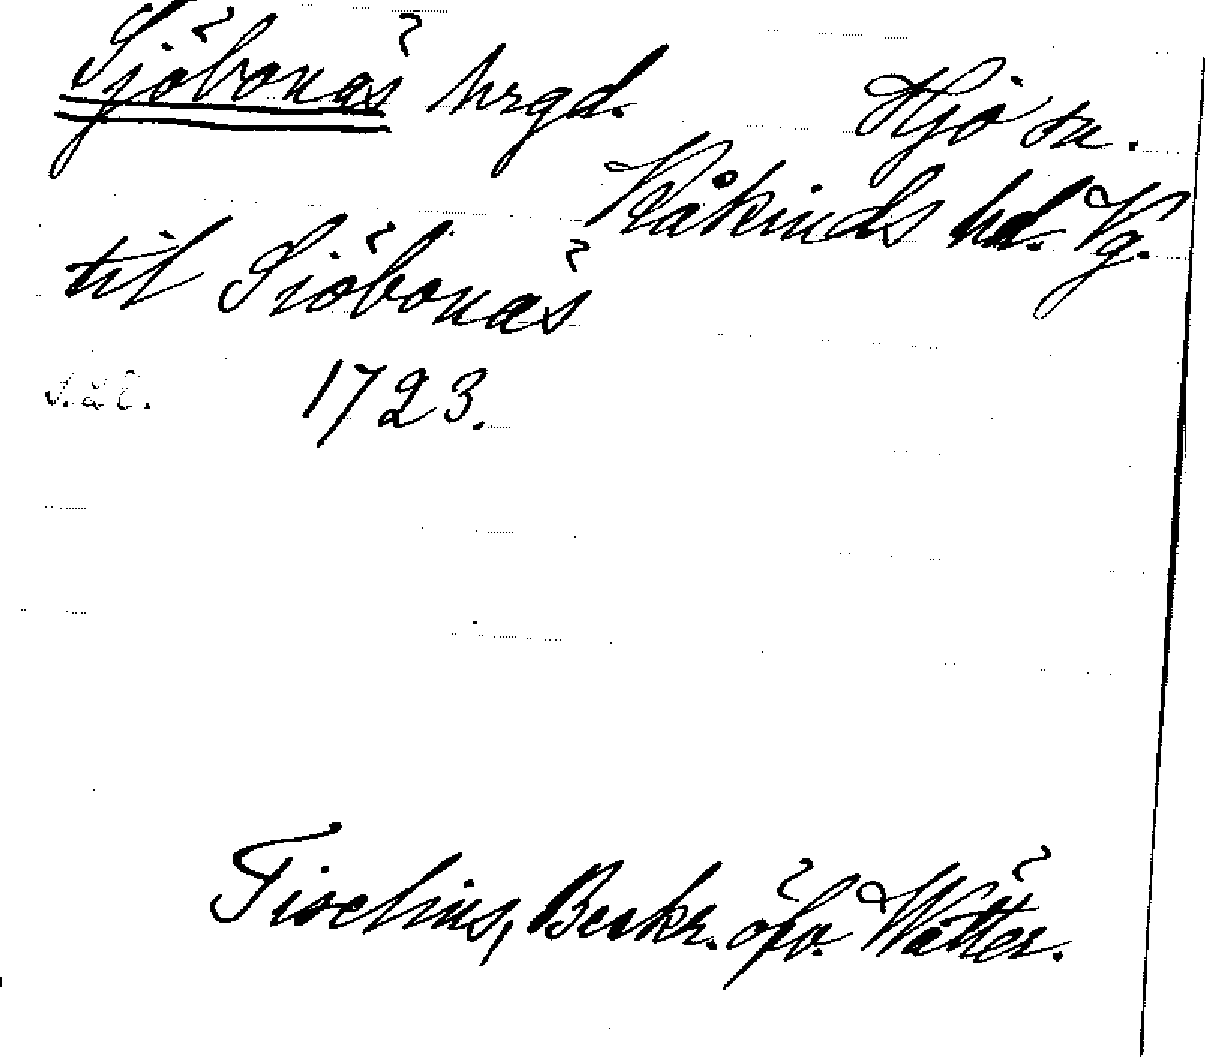 Sjöbonäs hrgd. Hjo sn.
Kåkinds hd. Vg.
til Siöbonäs
s. 26. 1723.
Tiselius, Beskr. öfv. Wätter.